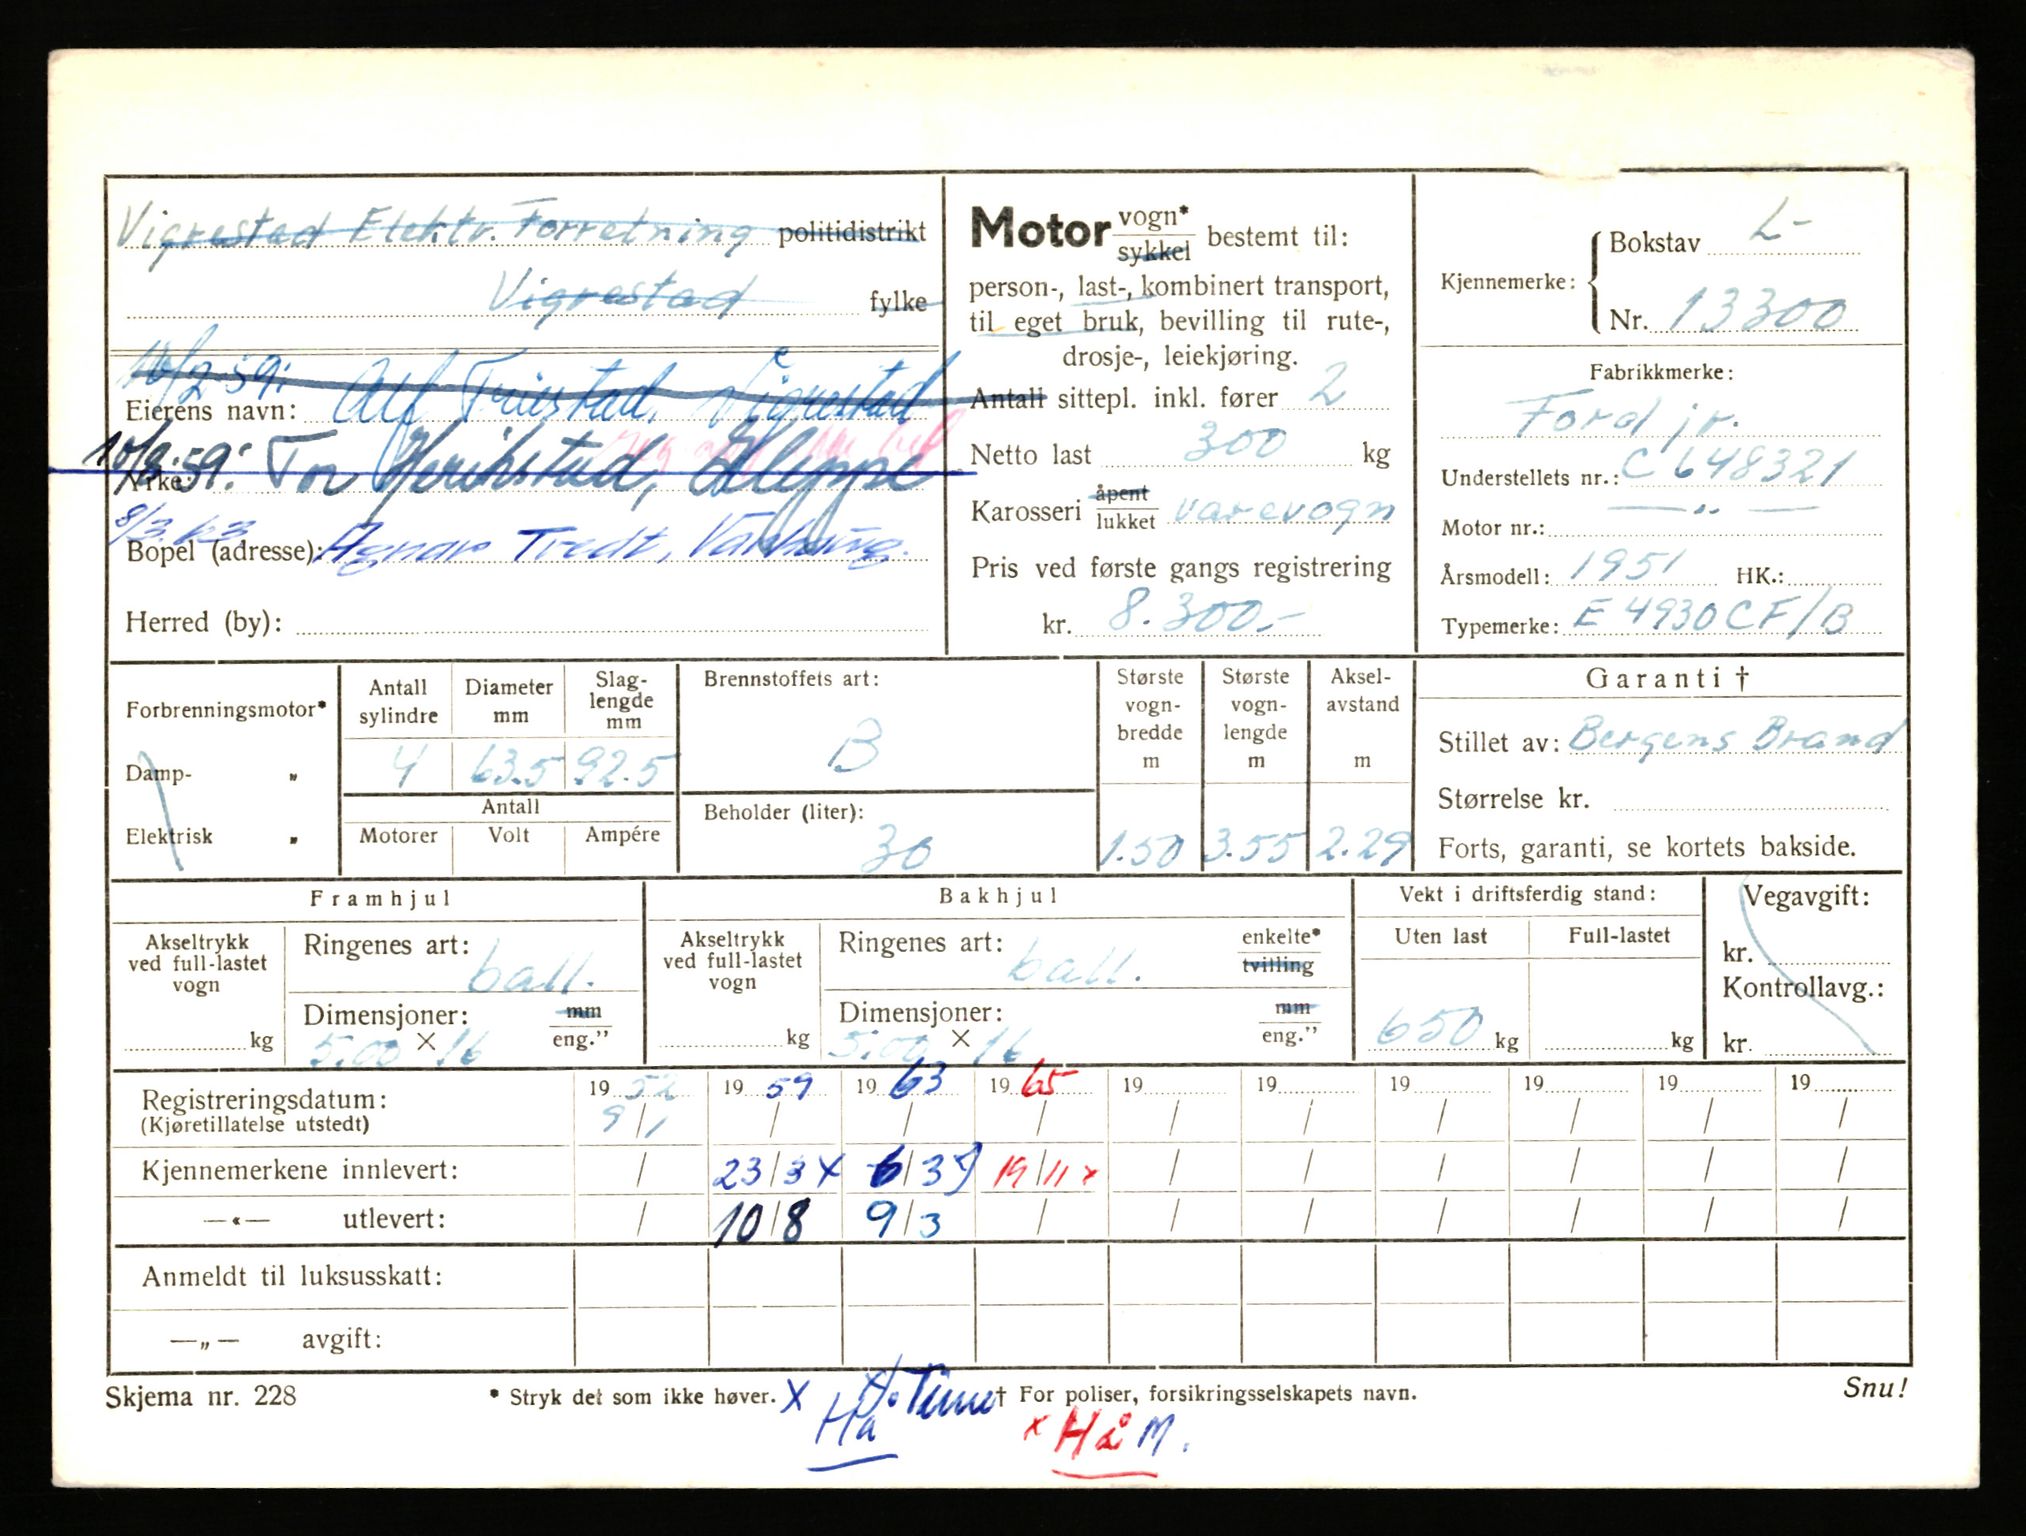 Vigrestad Elektr. Forretning politidistrikt
Vigrestad fylke
Eierens navn: Alf Vigrestad
Yrke: 59: Tor Kleppe
8/3.63
Bopel (adresse): Agnar Tredt, Varhaug.
Herred (by):
Motor vogn* sykkel bestemt til:
person-, last-, kombinert transport,
til eget bruk, bevilling til rute-,
drosje-, leiekjøring.
Antall sittepl. inkl. fører 2
Netto last 300 kg
Karosseri åpent lukket varevogn
Pris ved første gangs registrering
kr. 8.300.-
Kjennemerke: Bokstav L-
Nr. 13300
Fabrikkmerke:
Ford jr.
Understellets nr.: C 648321
Motor nr.: — „ —
Årsmodell: 1951 HK.:
Typemerke: E 4930 CF/B
Forbrenningsmotor*
Damp- „
Elektrisk „
Antall sylindre
Diameter mm
Slag-lengde mm
4 63.5 92.5
Antall
Motorer Volt Ampére
Brennstoffets art:
B
Beholder (liter):
30
Største vogn-bredde m
Største vogn-lengde m
Aksel-avstand m
1.50 3.55 2.29
Garanti †
Stillet av: Bergens Brand
Størrelse kr.
Forts, garanti, se kortets bakside.
Framhjul
Akseltrykk ved full-lastet vogn
kg
Ringenes art: ball.
Dimensjoner: mm eng.”
5.00 × 16
Bakhjul
Akseltrykk ved full-lastet vogn
kg
Ringenes art: ball. enkelte* tvilling
Dimensjoner: mm eng.”
5.00 × 16
Vekt i driftsferdig stand:
Uten last Full-lastet
650 kg kg
Vegavgift:
kr.
Kontrollavg.:
kr.
Registreringsdatum: 19 52 19 59 19 63 19 65 19 19 19 19 19 19
(Kjøretillatelse utstedt) 9/1 / / / / / / / / /
Kjennemerkene innlevert: / 23/3 x 6/3 19/11 x / / / / / /
—«— utlevert: / 10/8 9/3 / / / / / / /
Anmeldt til luksusskatt:
—„— avgift:
Skjema nr. 228
* Stryk det som ikke høver. X
† For poliser, forsikringsselskapets navn.
Snu!
Hå
x Hå M.